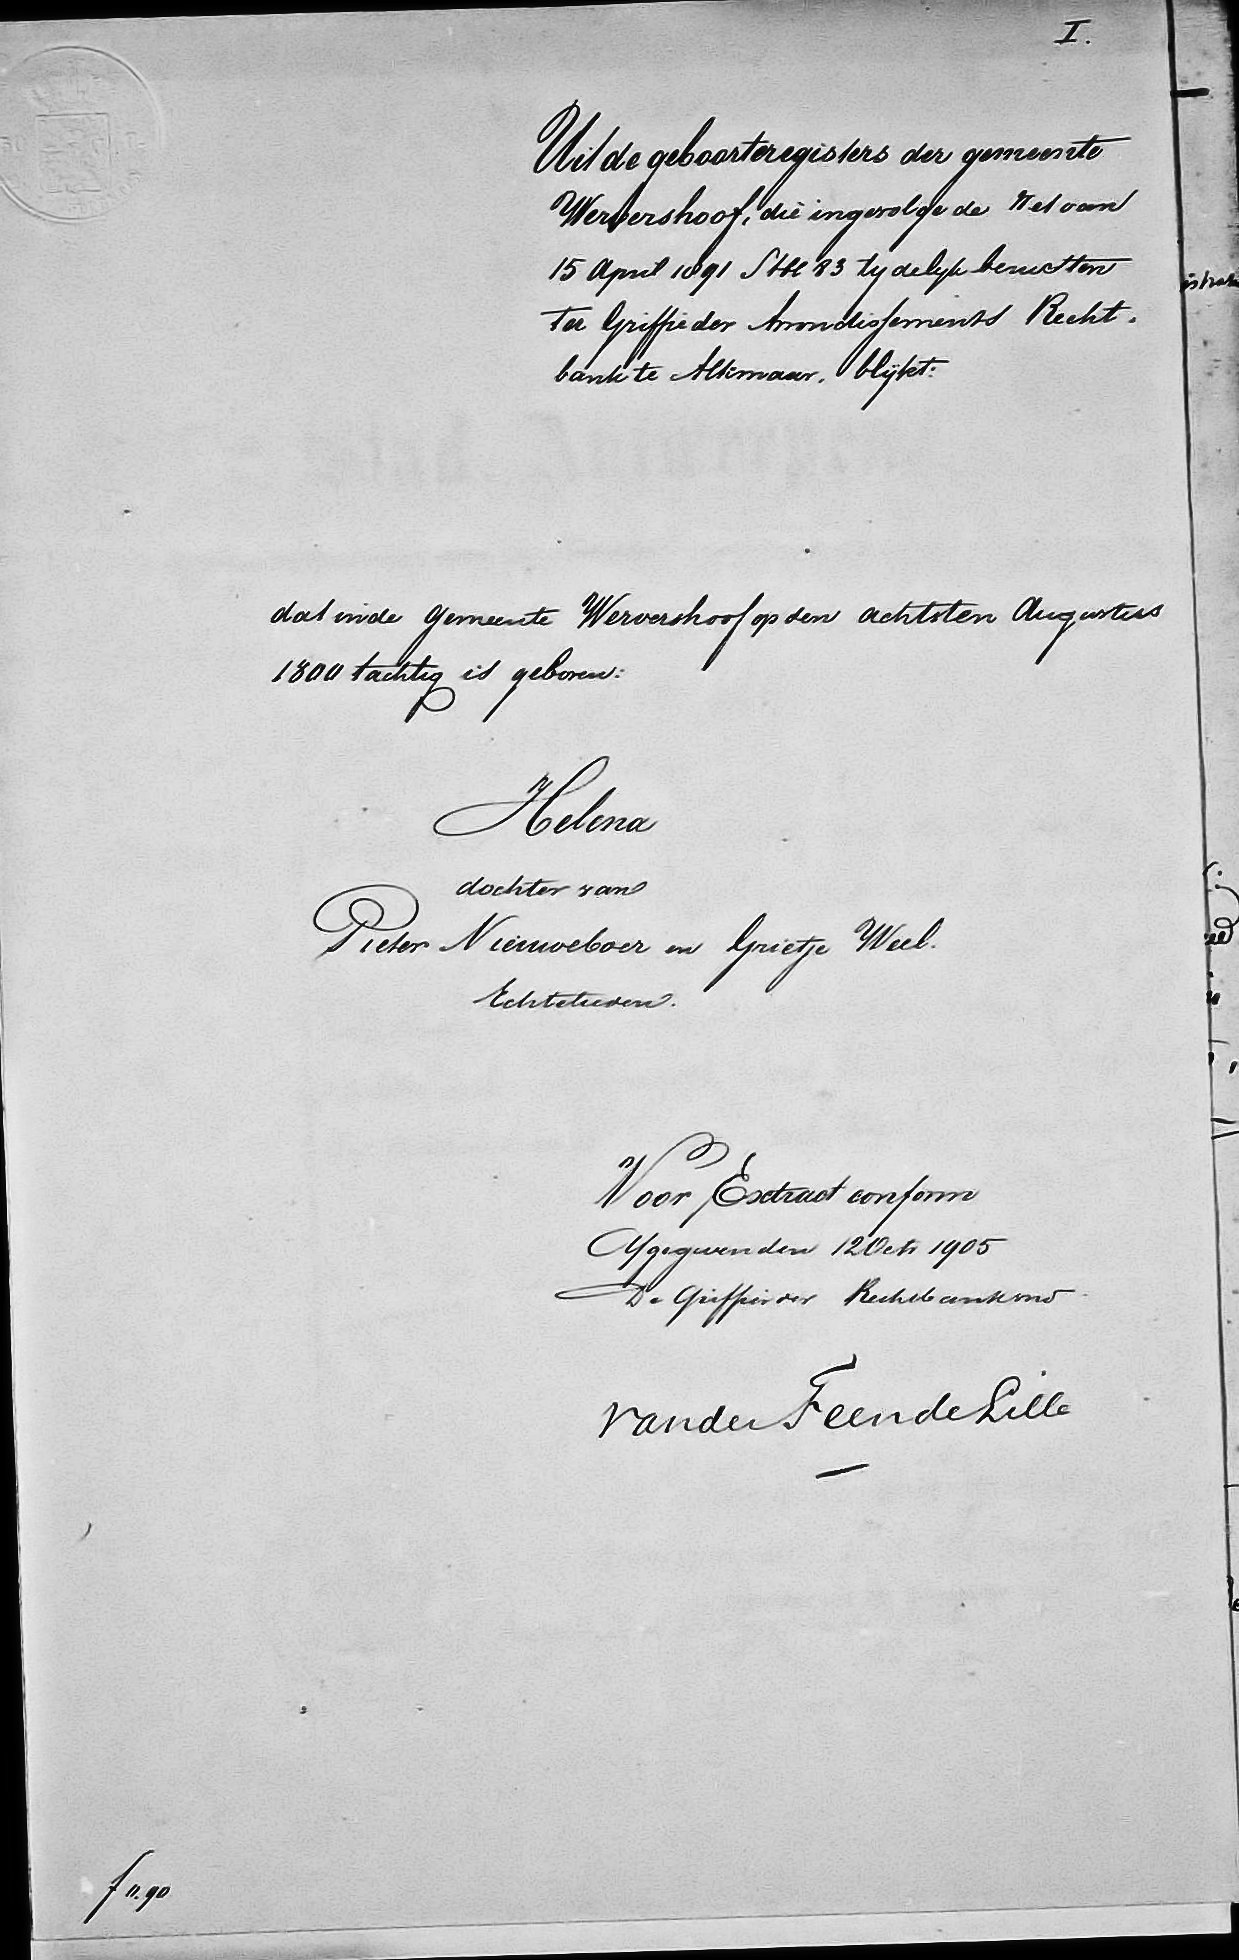 I.
Uit de geboorteregisters der gemeente
Wervershoof, die ingevolge de Wet van
15 April 1891 Stbl 83 tydelyk berusten
ter Griffie der Arrondissements Recht-
bank te Alkmaar, blijkt:
dat in de gemeente Wervershoof op den achtsten Augustus
1800 tachtig is geboren:
Helena
dochter van
Pieter Nieuweboer en Grietje Weel.
Echtelieden.
Voor Extract conform
Afgegeven den 12 Oct 1905
De Griffier der Rechtbank
van der Feen de Lille
f 0.90